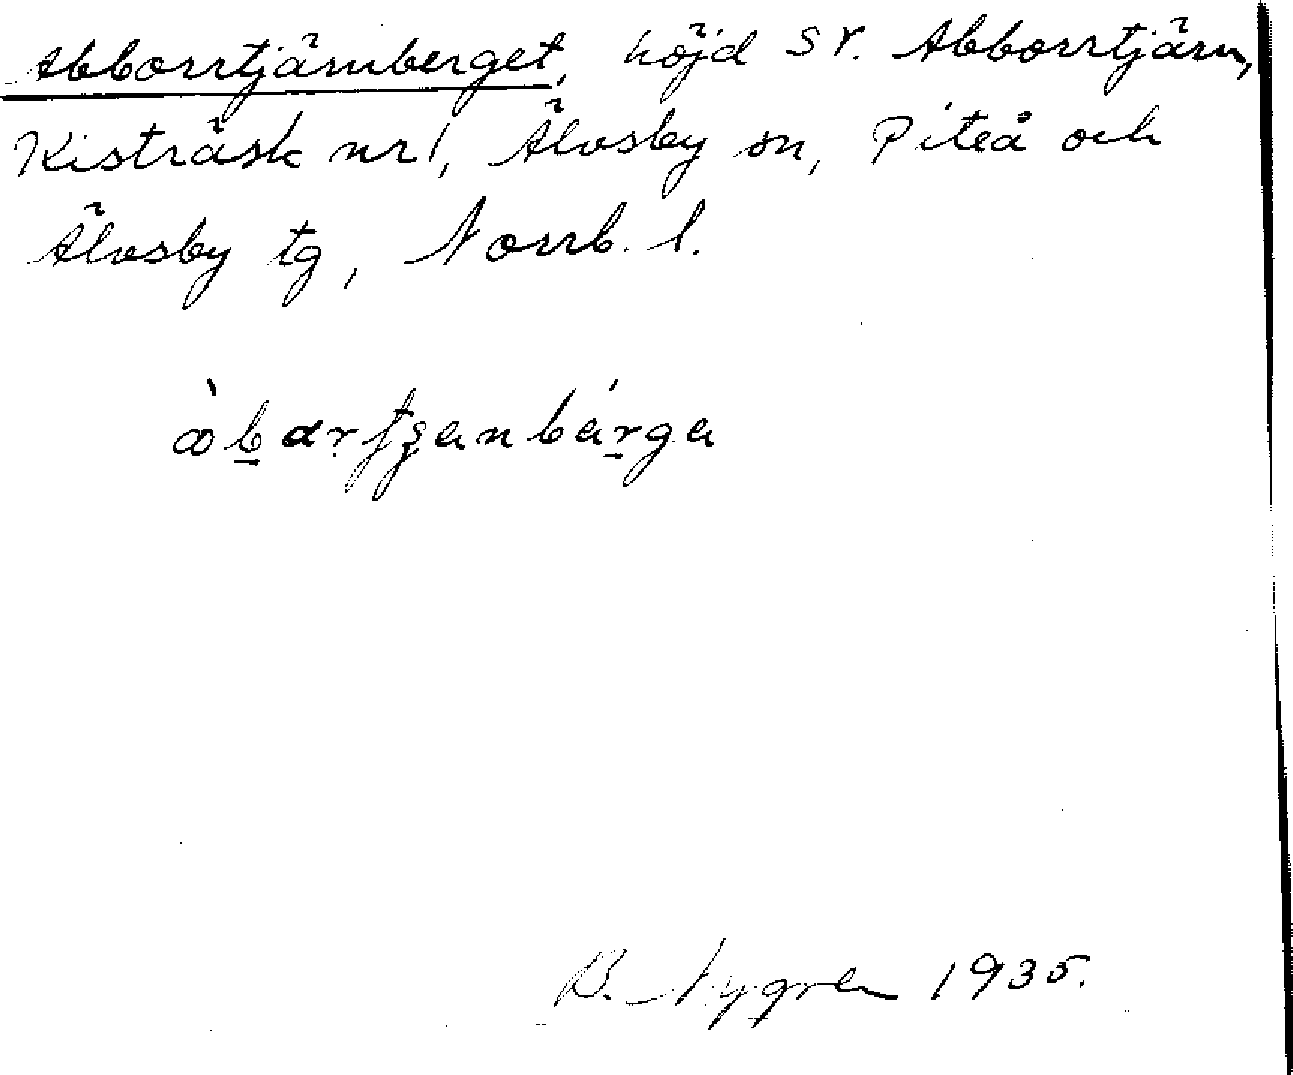 Abborrtjärnberget, höjd SV. Abborrtjärn,
Kisträsk nr 1, Älvsby sn, Piteå och
Älvsby tg, Norrb. l.
B. Nygren 1935.